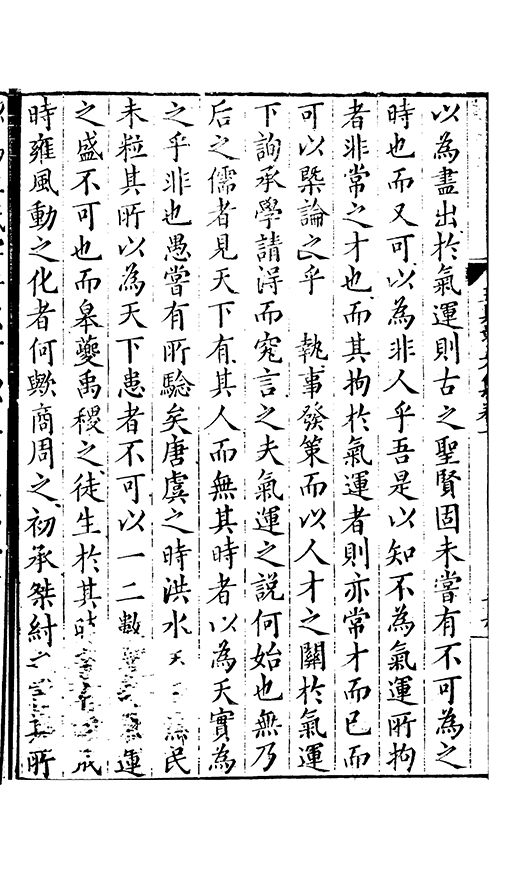 以為盡出於氣運則古之聖賢固未嘗有不可為之
時也而又可以為非人乎吾是以知不為氣運所拘
者非常之才也而其拘於氣運者則亦常才而已而
可以槩論之乎　執事發策而以人才之關於氣運
下詢承學請淂而究言之夫氣運之說何始也無乃
后之儒者見天下有其人而無其時者以為天實為
之乎非也愚嘗有所驗矣唐虞之時洪水民
未粒其所以為天下患者不可以一二數運
之盛不可也而皋夔禹稷之徒生於其時成
時雍風動之化者何歟商周之初承桀紂之所